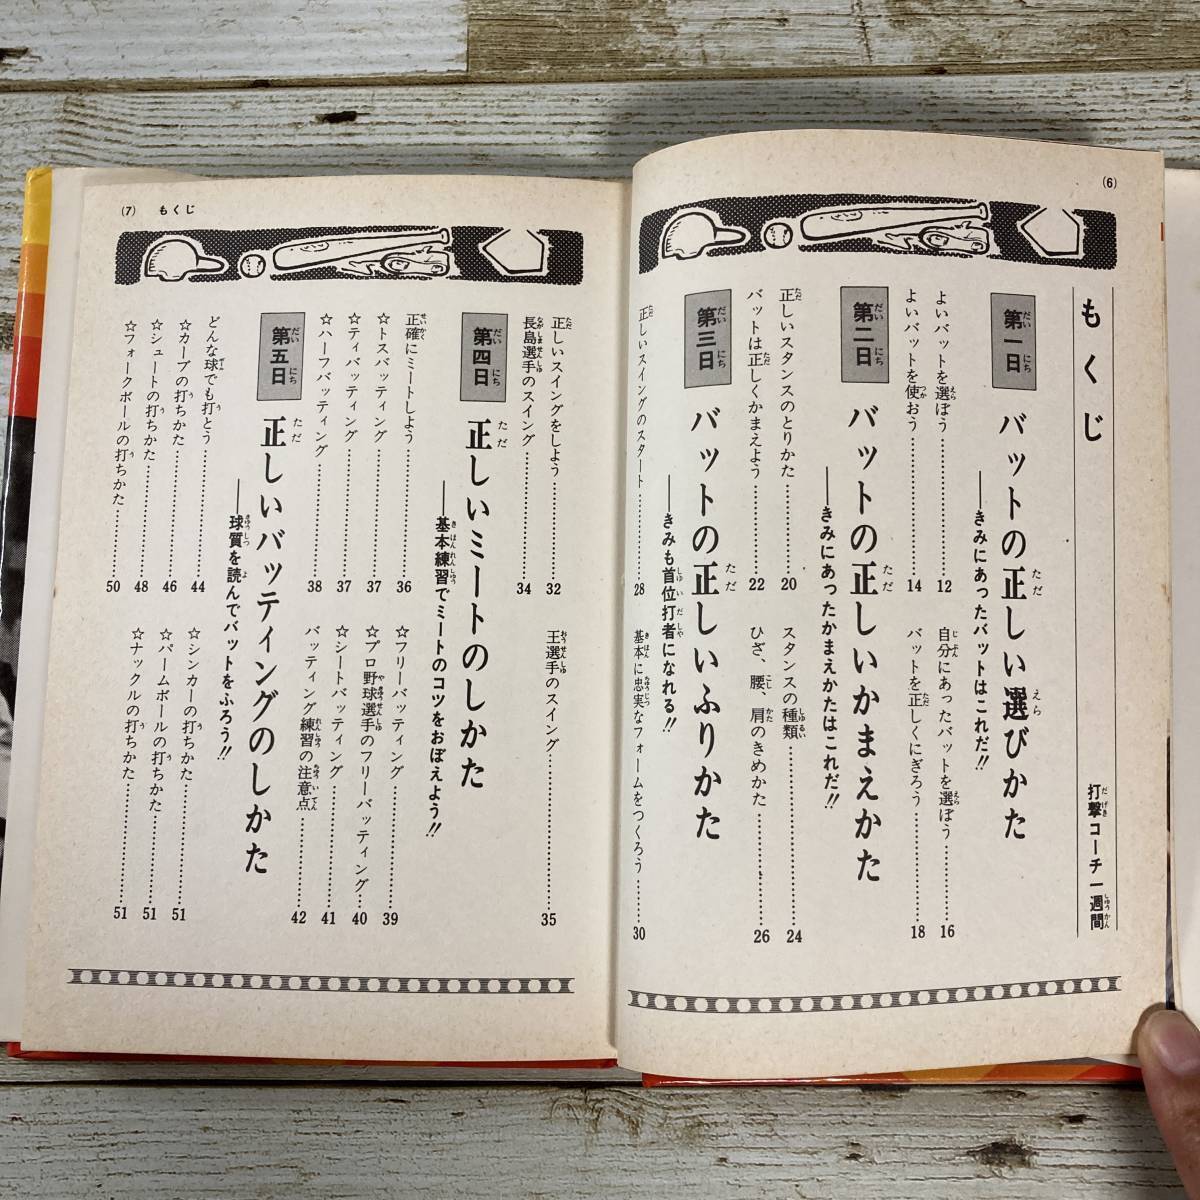 (6)
もくじ
打撃コーチ一週間
第一日
バットの正しい選びかた
――きみにあったバットはこれだ!!
よいバットを選ぼう……12
自分にあったバットを選ぼう……16
よいバットを使おう……14
バットを正しくにぎろう……18
第二日
バットの正しいかまえかた
――きみにあったかまえかたはこれだ!!
正しいスタンスのとりかた……20
スタンスの種類……24
バットは正しくかまえよう……22
ひざ、腰、肩のきめかた……26
第三日
バットの正しいふりかた
――きみも首位打者になれる!!
正しいスイングのスタート……28
基本に忠実なフォームをつくろう……30
(7) もくじ
正しいスイングをしよう……32
王選手のスイング……35
長島選手のスイング……34
第四日
正しいミートのしかた
――基本練習でミートのコツをおぼえよう!!
正確にミートしよう……36
☆フリーバッティング……39
☆トスバッティング……37
☆プロ野球選手のフリーバッティング……40
☆ティバッティング……37
☆シートバッティング……41
☆ハーフバッティング……38
バッティング練習の注意点……42
第五日
正しいバッティングのしかた
――球質を読んでバットをふろう!!
どんな球でも打とう……44
☆シンカーの打ちかた……51
☆カーブの打ちかた……46
☆パームボールの打ちかた……51
☆シュートの打ちかた……48
☆ナックルの打ちかた……51
☆フォークボールの打ちかた……50